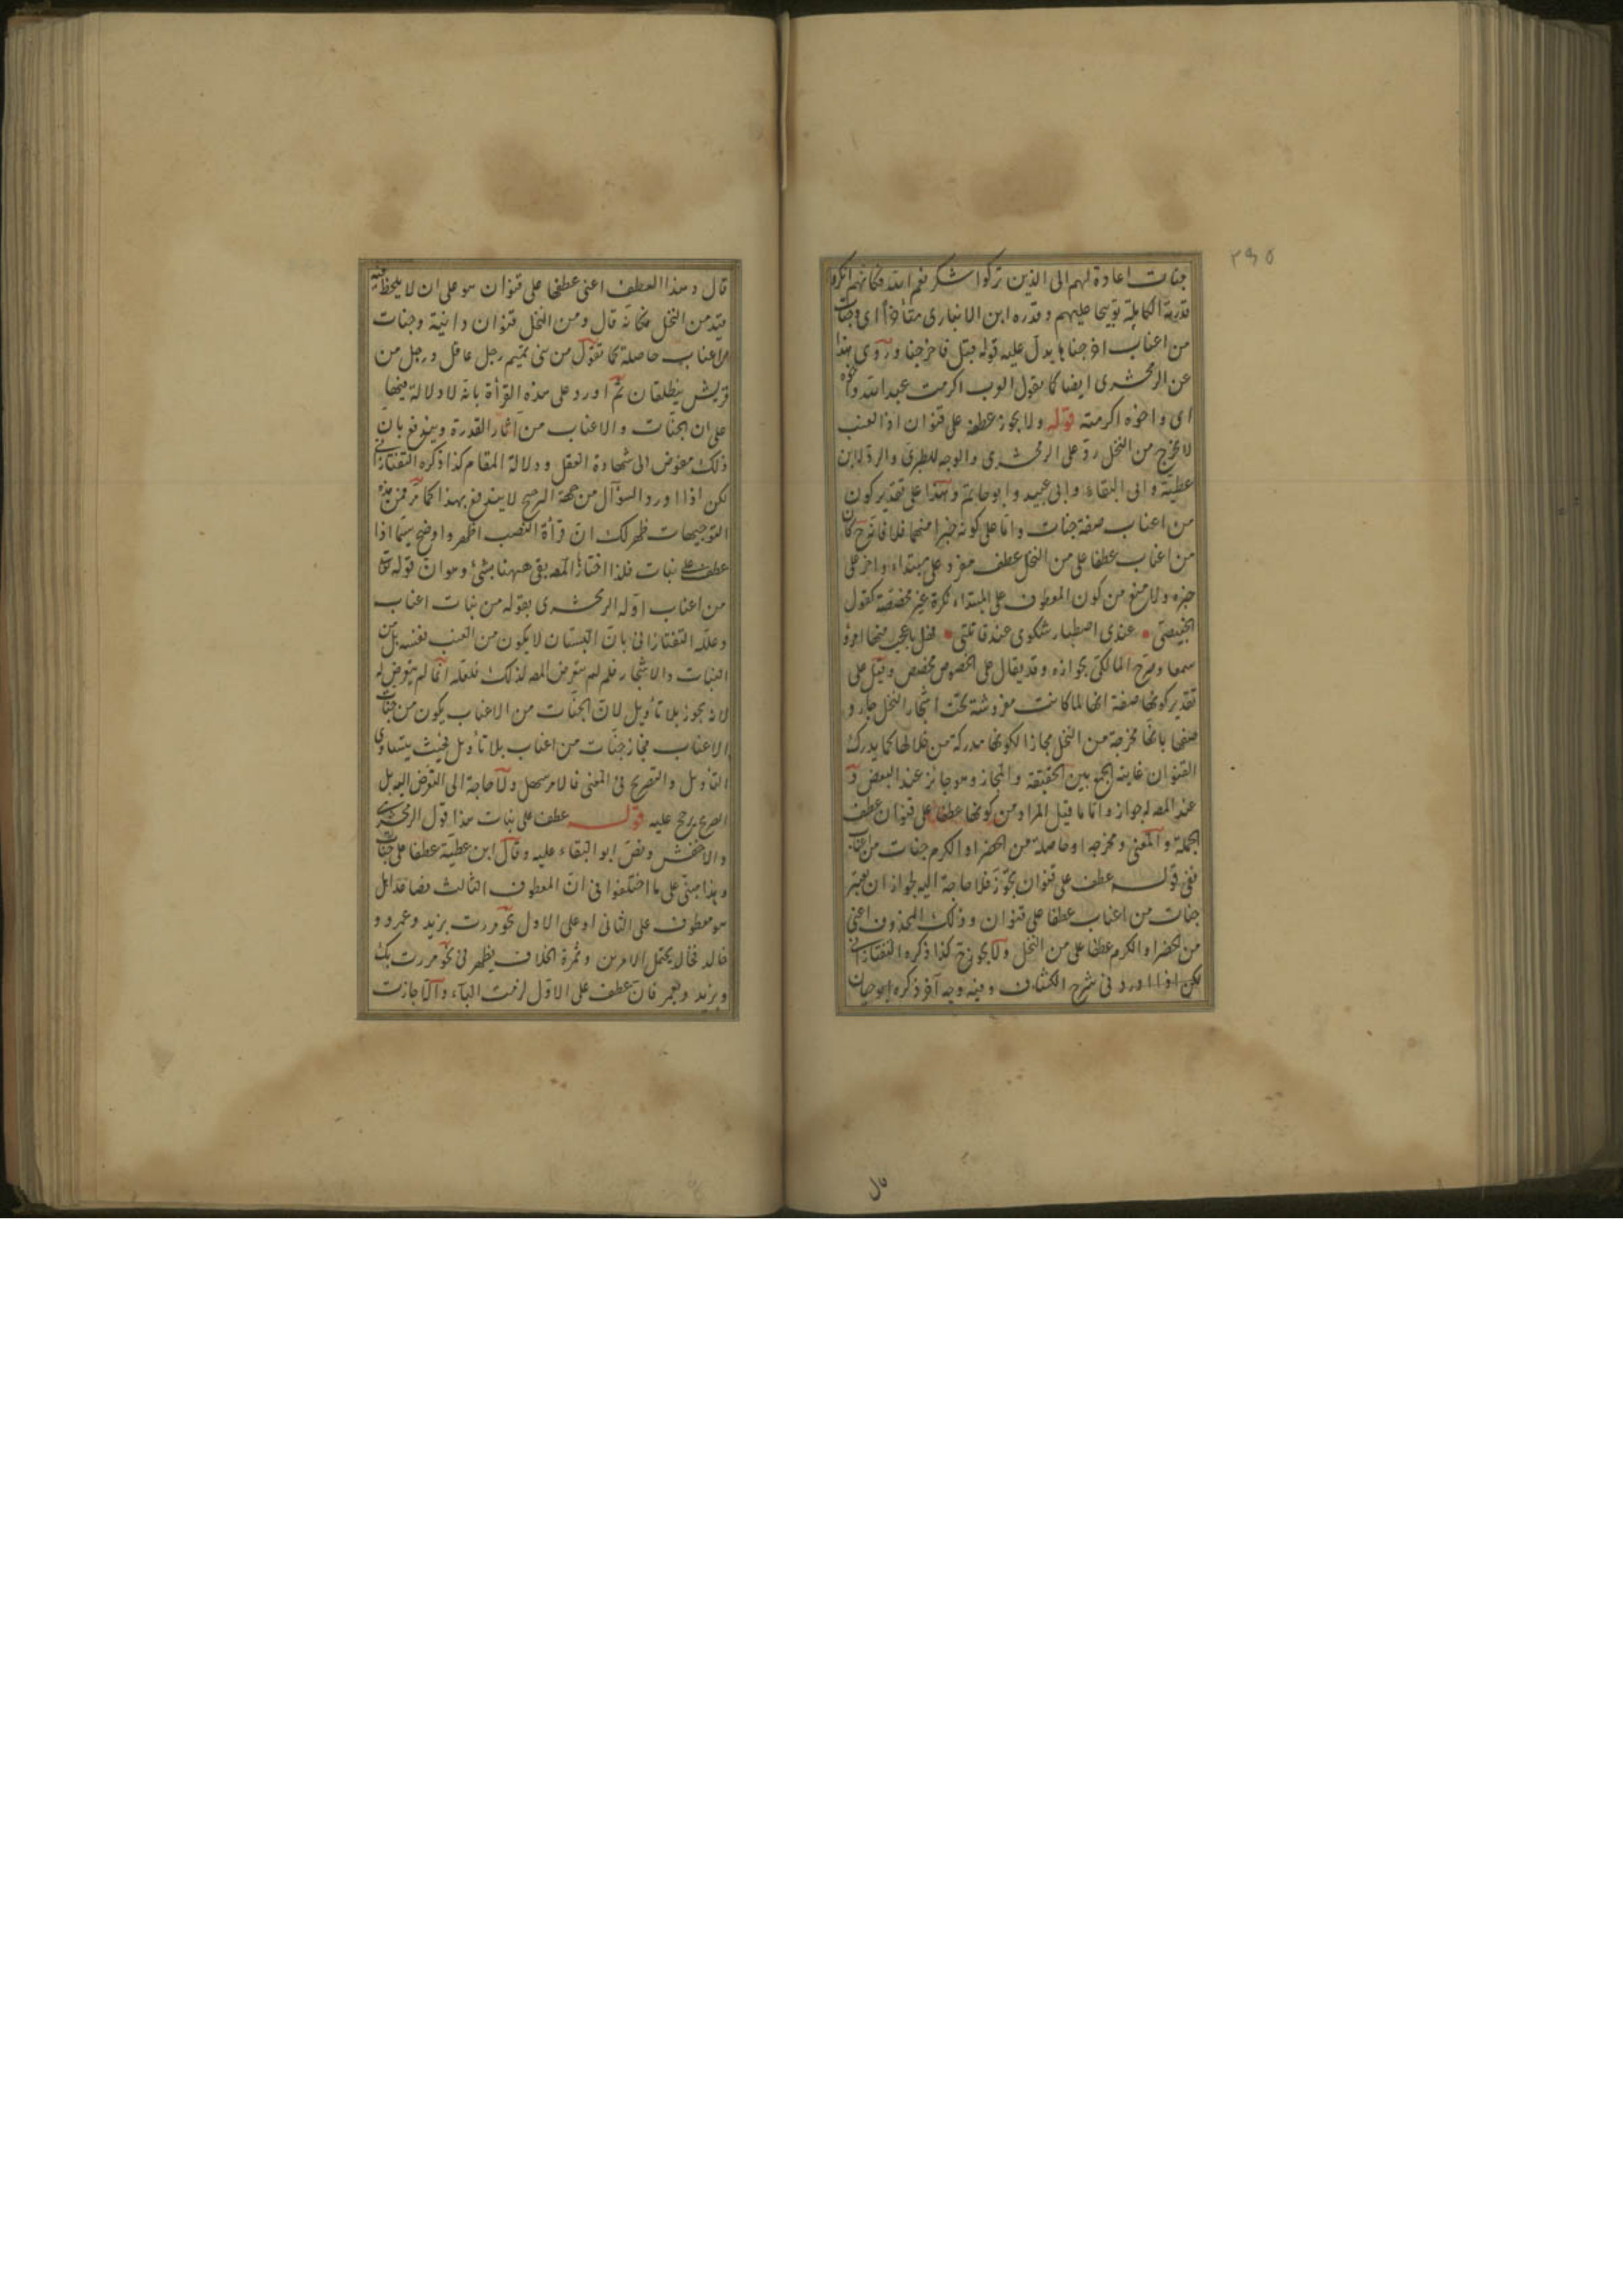 ٣٩٥
جنات اعادة لهم الى الذين تركوا شكر نعم الله فكانهم انكروا
قدرته الكاملة توبيخا عليهم وقدره ابن الانبارى متأخرا اى وجنات
من اعناب اخرجناها يدل عليه قوله قبل فاخرجنا وروى هذا
عن الزمخشرى ايضا كما يقول العرب اكرمت عبد الله واخوه
اى واخوه اكرمته قوله ولا يجوز عطفه على قنوان اذ العنب
لا يخرج من النخل رد على الزمخشرى والوجه للطبرى والرد لابن
عطية وابى البقاء وابى عبيد وابو حاتم وهذا على تقدير كون
من اعناب صفة جنات واما على كونه خبرا منها فلا فانه ح كان
من اعناب عطفا على من النخل عطف مفرد على مبتداء واخر على
خبره ولا منع من كون المعطوف على المبتداء نكرة غير مخصصة كقول
عندى اصطبار شكوى عند قاتلتى فهل باعجب منها امرؤ
سمعا وصرح المالكى بجوازه وقد يقال على الخصوص مخصص وقيل على
تقدير كونها صفة انها لما كانت مغروشة تحت اشجار النخل جاز و
صفها بانها مخرجة من النخل مجازا لكونها مدركة من خلالها كما يدرك
القنوان غايته الجمع بين الحقيقة والمجاز وهو جائز عند البعض و
عند المصه لجواز واما ما قيل المراد من كونها عطفا على قنوان عطف
الجملة والمعنى ومخرجه او حاصلة من الخضر او الكرم جنات من اعناب
ففى قوله عطف على قنوان تجوز فلا حاجة اليه لجواز ان يعتبر
جنات من اعناب عطفا على قنوان وذلك المحذوف اعنى
من الخضر او الكرم عطفا على من النخل ولا يجوز ح كذا ذكره التفتازانى
لكن اذا اورد فى شرح الكشاف وفيه وجه آخر ذكره ابو حيان
قال
قال وهذا العطف اعنى عطفها على قنوان هو على ان لا يلحظ فيه
قيد من النخل فكانه قال ومن النخل قنوان دانية وجنات
من اعناب حاصلة كما تقول من بنى تميم رجل عاقل ورجل من
قريش ينطلقان ثم اورد على هذه القرأة بانه لا دلالة فيها
على ان الجنات والاعناب من آثار القدرة ويندفع بان
ذلك مفوض الى شهادة العقل ودلالة المقام كذا ذكره التفتازانى
لكن اذا اورد السوآل من جهة الترجيح لا يندفع بهذا كما مر فمن هذه
التوجيهات ظهر لك ان قرأة النصب اظهر واوضح سيما اذا
عطف على نبات فلذا اختارها المصه بقى ههنا شئ وهو ان قوله تعالى
من اعناب اوله الزمخشرى بقوله من نبات اعناب
وعلله التفتازانى بان البستان لا يكون من العنب نفسه بل من
النبات والاشجار فلم لم يتعرض المصه لذلك فلعله انما لم يتعرض له
لانه يجوز بلا تأويل لان الجنات من الاعناب يكون من جنات
الاعناب فجاز جنات من اعناب بلا تأويل فحيث يتساوى
التأويل والتصريح فى المعنى فالامر سهل ولا حاجة الى التعرض اليه بل
التصريح يرجح عليه قوله عطف على نبات هذا قول الزمخشرى
والاخفش ونص ابو البقاء عليه وقال ابن عطية عطفا على حبا
وهذا مبنى على ما اختلفوا فى ان المعطوف الثالث فصاعدا هل
هو معطوف على الثانى او على الاول نحو مررت بزيد وعمرو و
خالد فخالد يحتمل الامرين وثمرة الخلاف يظهر فى نحو مررت بك
وبزيد وبعمر فان عطف على الاول لزمت الباء والا جازت